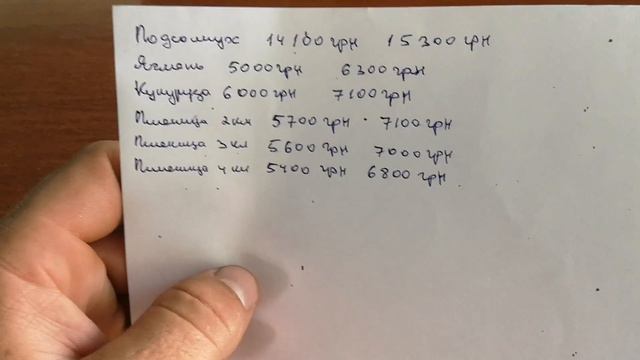 Подсолнух 14100грн 15300грн
Ячмень 5000грн 6300грн
Кукуруза 6000грн 7100грн
Пшеница 2кл 5700грн 7100грн
Пшеница 3кл 5600грн 7000грн
Пшеница 4кл 5400грн 6800грн